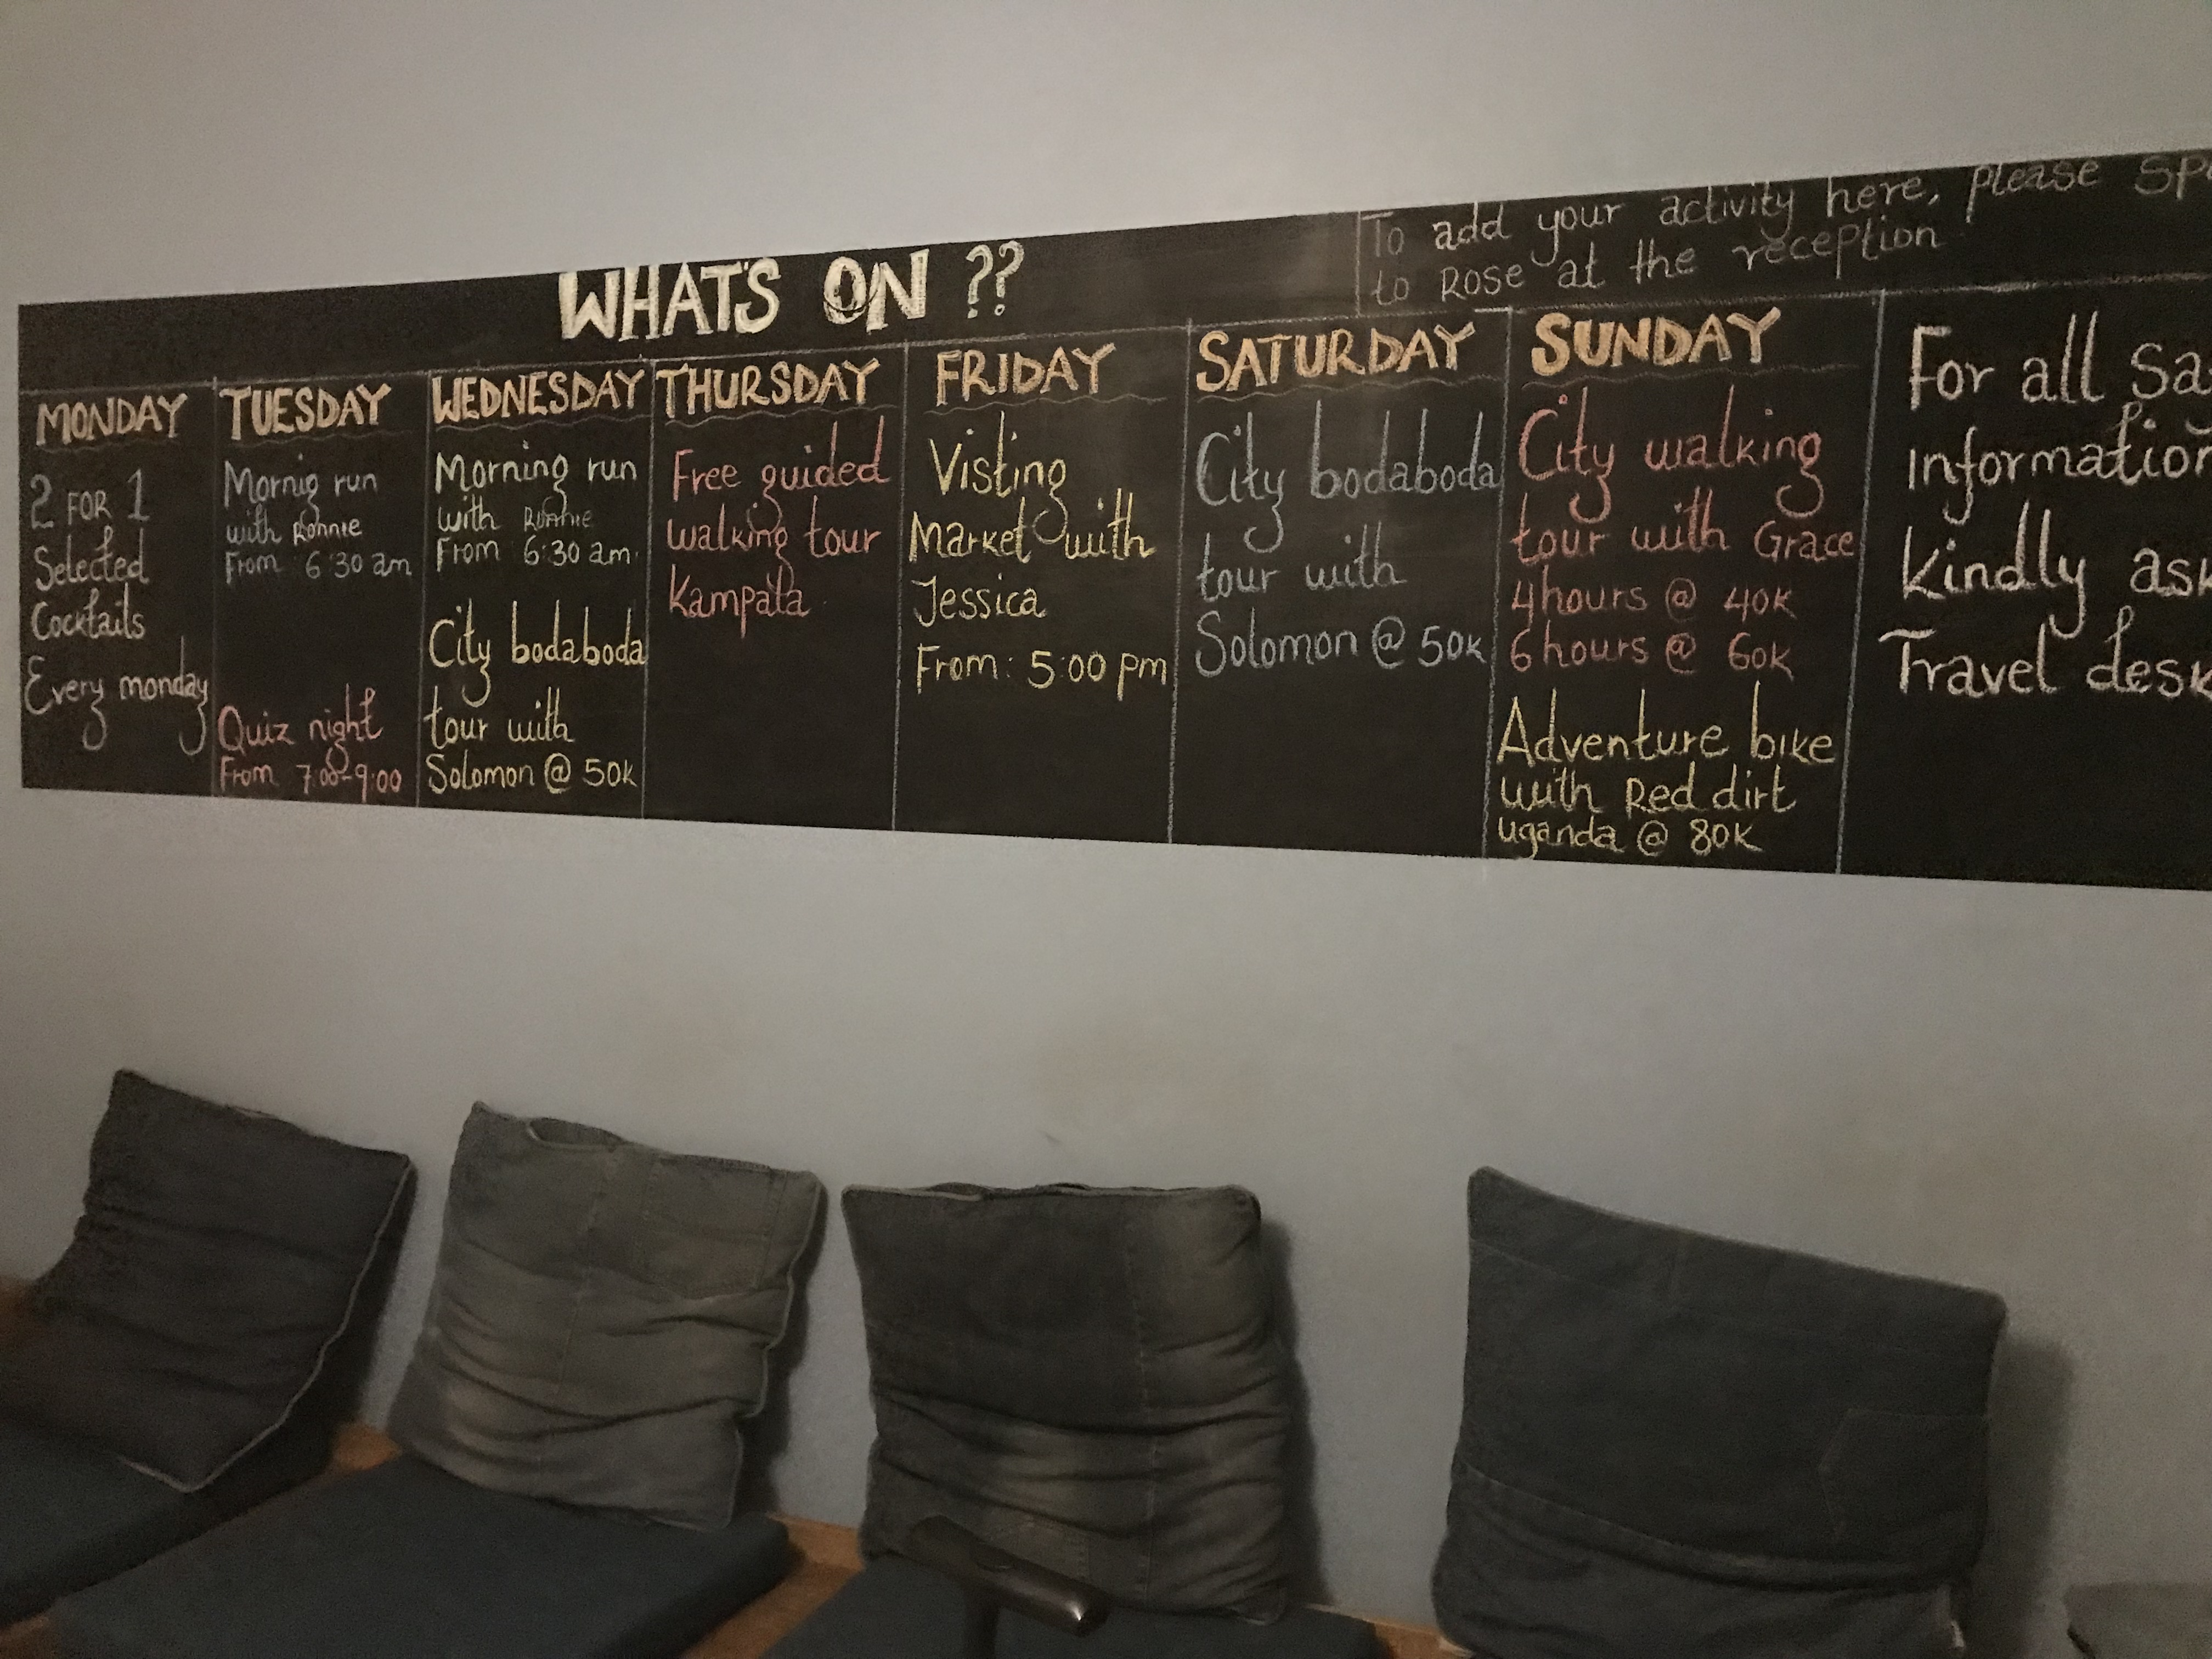 WHAT'S ON ??
To add your activity here, please
to Rose at the reception
MONDAY
2 FOR 1
Selected
Cocktails
Every monday
TUESDAY
Mornig run
with Ronnie
From 6:30 am
Quiz night
From 7:00-9:00
WEDNESDAY
Morning run
with Ronnie
From 6:30 am
City bodaboda
tour with
Solomon @ 50K
THURSDAY
Free guided
walking tour
Kampala
FRIDAY
Visting
Market with
Jessica
From: 5:00 pm
SATURDAY
City bodaboda
tour with
Solomon @ 50K
SUNDAY
City walking
tour with Grace
4hours @ 40K
6hours @ 60K
Adventure bike
with Red dirt
uganda @ 80K
For all
information
Kindly ask
Travel desk